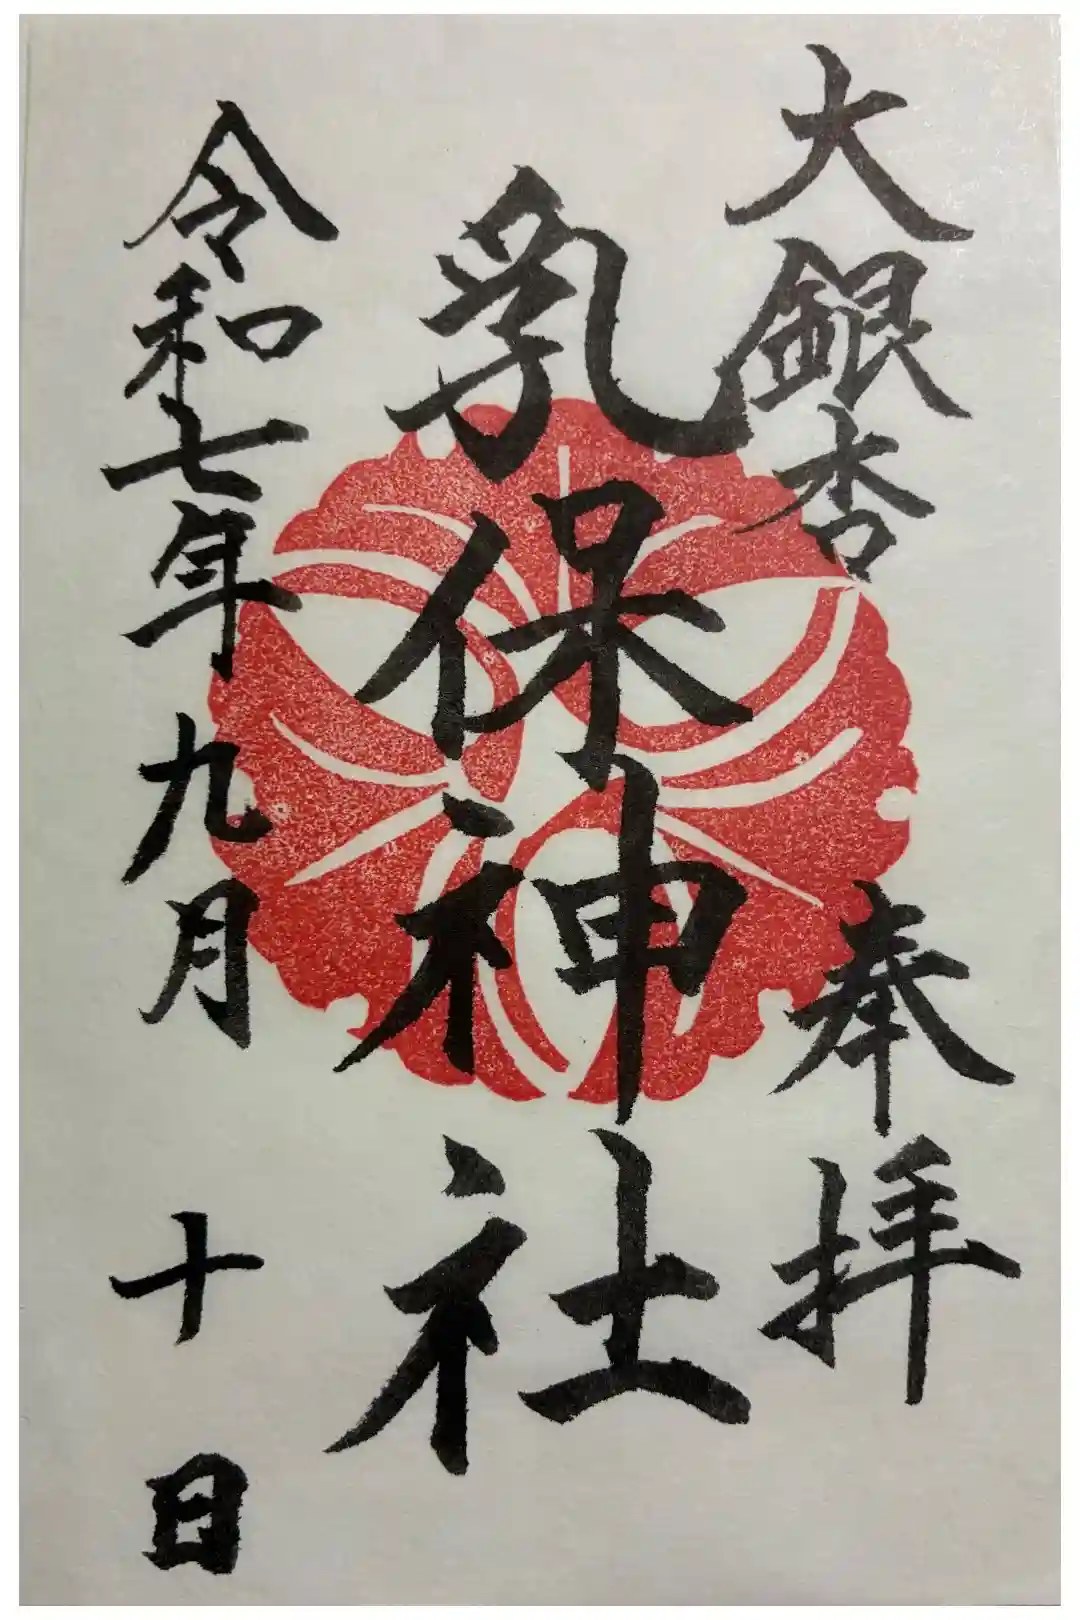 大銀杏 奉拝
乳保神社
令和七年九月十日